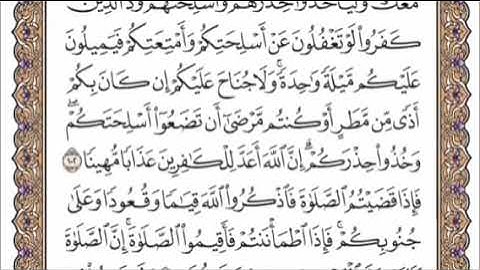 مَعَكَ وَلْيَأْخُذُوا۟ حِذْرَهُمْ وَأَسْلِحَتَهُمْ وَدَّ ٱلَّذِينَ
كَفَرُوا۟ لَوْ تَغْفُلُونَ عَنْ أَسْلِحَتِكُمْ وَأَمْتِعَتِكُمْ فَيَمِيلُونَ
عَلَيْكُم مَّيْلَةً وَٰحِدَةً ۚ وَلَا جُنَاحَ عَلَيْكُمْ إِن كَانَ بِكُمْ
أَذًى مِّن مَّطَرٍ أَوْ كُنتُم مَّرْضَىٰٓ أَن تَضَعُوٓا۟ أَسْلِحَتَكُمْ ۖ
وَخُذُوا۟ حِذْرَكُمْ ۗ إِنَّ ٱللَّهَ أَعَدَّ لِلْكَٰفِرِينَ عَذَابًا مُّهِينًا ١٠٢
فَإِذَا قَضَيْتُمُ ٱلصَّلَوٰةَ فَٱذْكُرُوا۟ ٱللَّهَ قِيَٰمًا وَقُعُودًا وَعَلَىٰ
جُنُوبِكُمْ ۚ فَإِذَا ٱطْمَأْنَنتُمْ فَأَقِيمُوا۟ ٱلصَّلَوٰةَ ۚ إِنَّ ٱلصَّلَوٰةَ